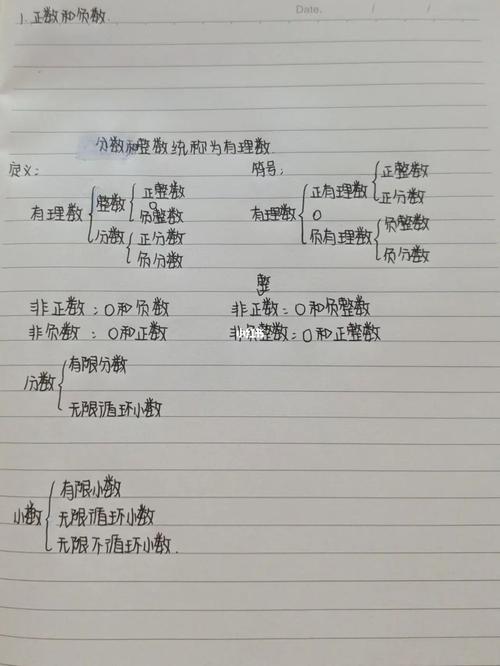 Date. / /
1.正数和负数.
分数和整数统称为有理数.
定义:
有理数
整数
正整数
0
负整数
分数
正分数
负分数
符号;
有理数
正有理数
正整数
正分数
0
负有理数
负整数
负分数
非正数:0和负数
非负数:0和正数
整
非正数:0和负整数
非负整数:0和正整数
分数
有限分数
无限循环小数
小数
有限小数
无限循环小数
无限不循环小数.